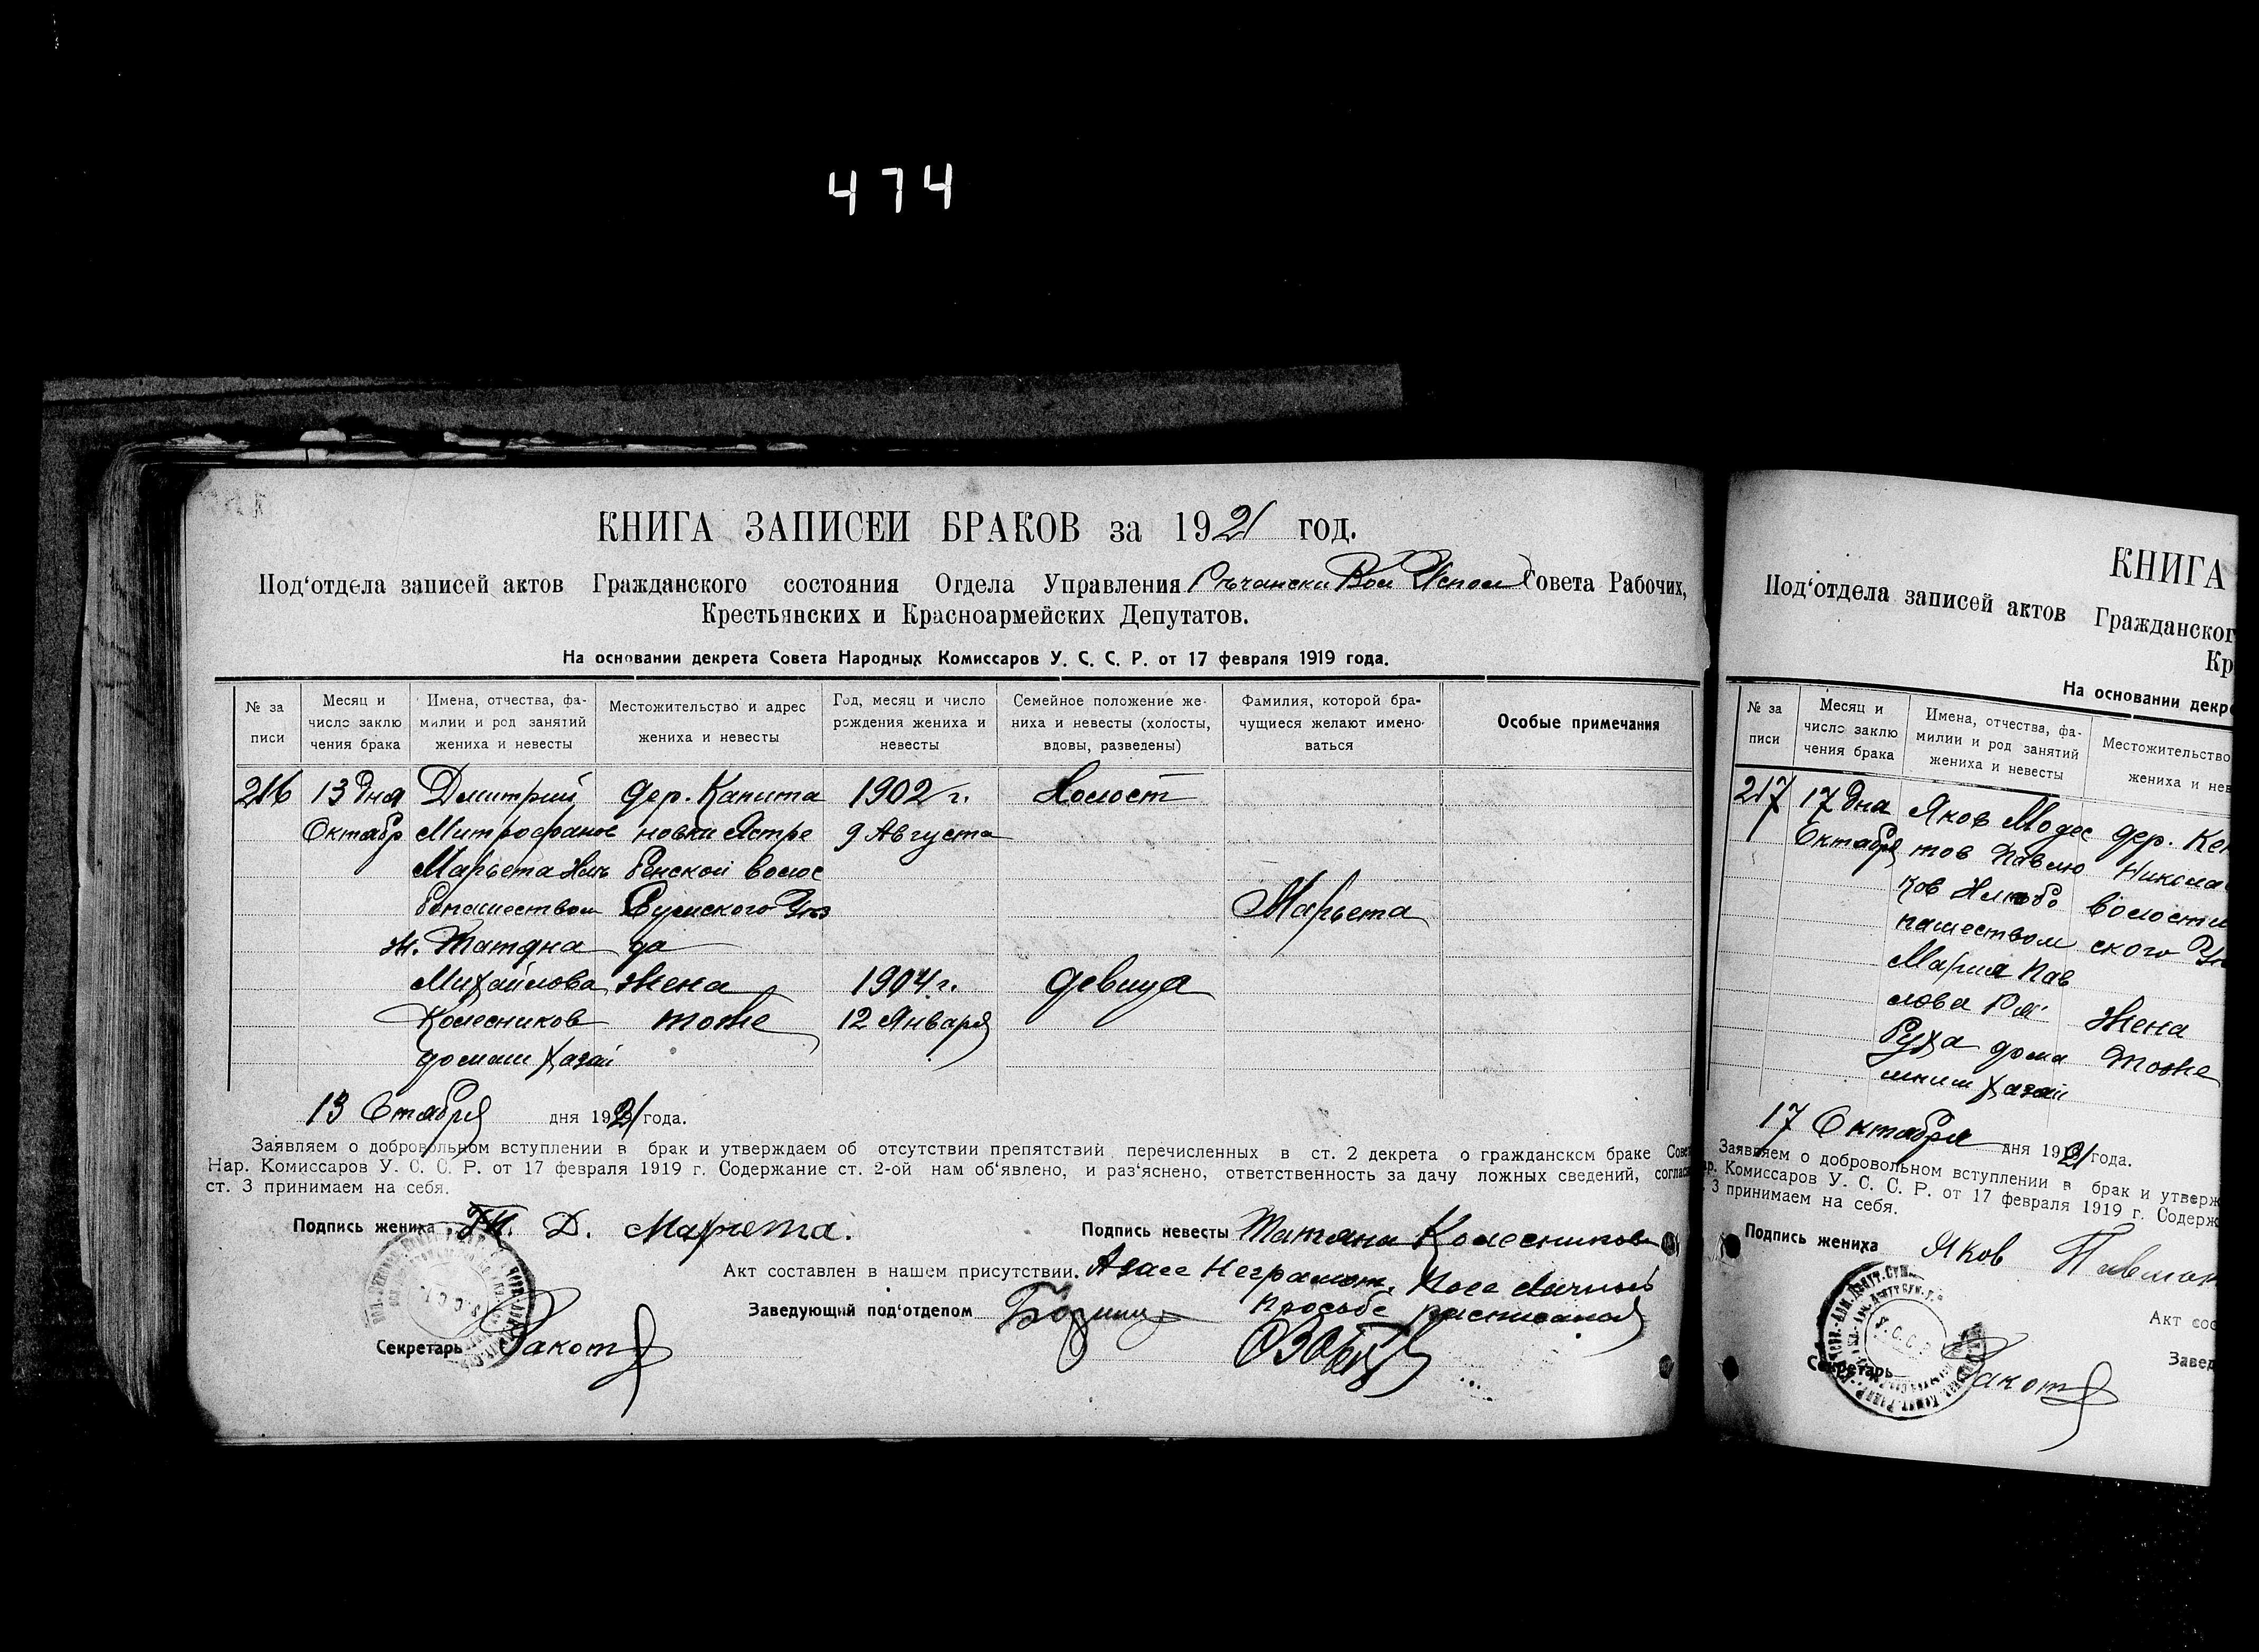 474
КНИГА ЗАПИСЕИ БРАКОВ за 1921 год.
Под‘отдела записей актов Гражданского состояния Отдела Управления Совета Рабочих,
Крестьянских и Красноармейских Депутатов.
На основании декрета Совета Народных Комиссаров У. С. С. Р. от 17 февраля 1919 года.
№ за писи
Месяц и число заклю чения брака
Имена, отчества, фа- милии и род занятий жениха и невесты
Местожительство и адрес жениха и невесты
Год, месяц и число рождения жениха и невесты
Семейное положение же- ниха и невесты (холосты, вдовы, разведены)
Фамилия, которой бра- чущиеся желают имено- ваться
Особые примечания
216 13 дня Дмитрий дер. Капита 1902 г. Холост
Октябр Митрофанов новки Ястре 9 Августа
Марьета Хлѣ бенской волос
бопашеством Сумского Уѣз Марьета
ж. Татяна да
Михайлова жена 1904 г. девица
Колесников тоже 12 Января
домаш хазяй
13 Отября дня 1921 года.
Заявляем о добровольном вступлении в брак и утверждаем об отсутствии препятствий перечисленных в ст. 2 декрета о гражданском браке Сове
Нар. Комиссаров У. С. С. Р. от 17 февраля 1919 г. Содержание ст. 2-ой нам об‘явлено, и раз‘яснено, ответственность за дачу ложных сведений, соглас
ст. 3 принимаем на себя.
Подпись жениха Д. Марьета.
Подпись невесты Татяна Колесников
Акт составлен в нашем присутствии. Неграмот. личной
Заведующий под‘отделом просьбе расписался
Секретарь
КНИГА
Под‘отдела записей актов Гражданског
Кр
На основании декре
№ за писи
Месяц и число заклю чения брака
Имена, отчества, фа- милии и род занятий жениха и невесты
Местожительство жениха и нев
217 17 дна Яков Модес дер.
Октября тов Павлю Никола
ков Хлѣбо волости
пашеством ского
Мария Пав
лова жена
дома тоже
шниш хазяй
17 Октября дня 1921 года.
Заявляем о добровольном вступлении в брак и утверж
ар. Комиссаров У. С. С. Р. от 17 февраля 1919 г. Содерж
. 3 принимаем на себя.
Подпись жениха Яков
Акт сос
Завед
Секретарь